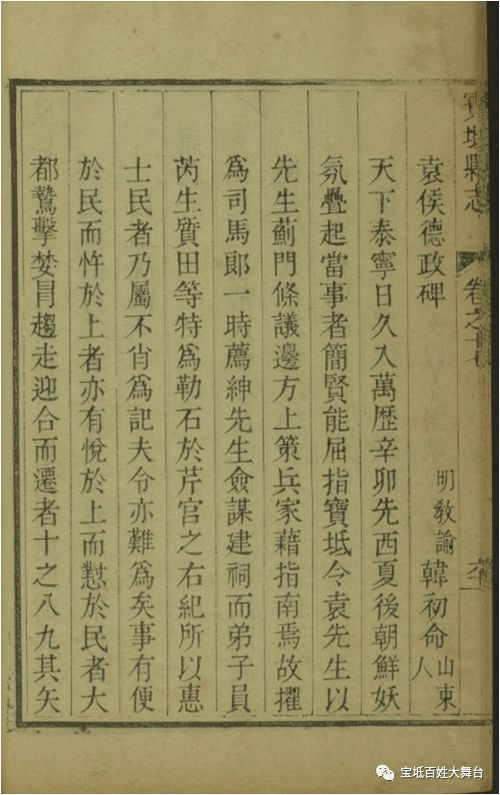 寶坻縣志
卷之十
袁侯德政碑
明教諭韓初命山東人
天下泰寧日久入萬歷辛卯先西夏後朝鮮妖
氛疊起當事者簡賢能屈指寶坻令袁先生以
先生薊門條議邊方上策兵家藉指南焉故擢
為司馬郎一時薦紳先生僉謀建祠而弟子員
芮生質田等特為勒石於芹宮之右紀所以惠
士民者乃屬不肖為記夫令亦難為矣事有便
於民而忤於上者亦有悅於上而懟於民者大
都鷙擊婪冒趨走迎合而遷者十之八九其矢
宝坻百姓大舞台